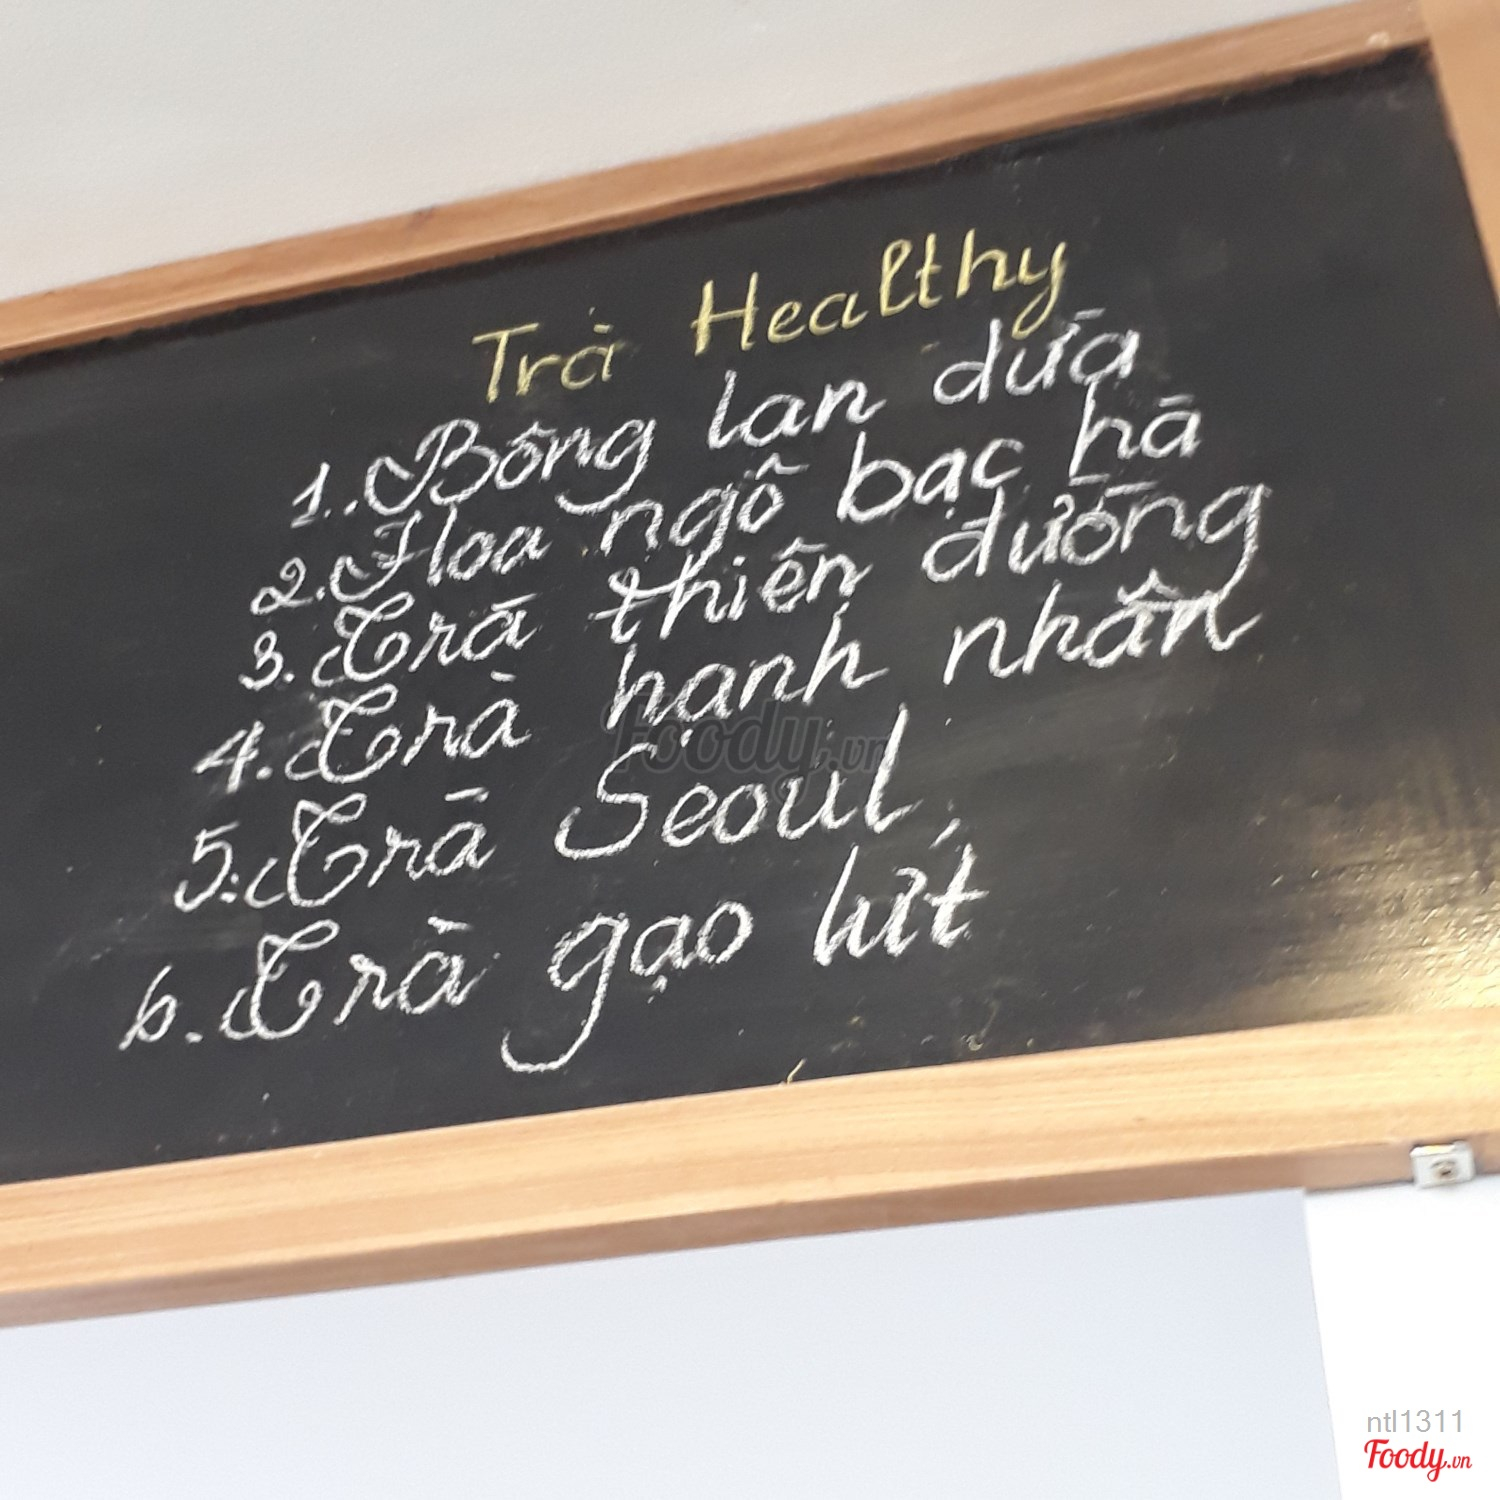 Trà Healthy
1. Bông lan dừa
2. Hoa ngỗ bạc hà
3. Trà thiên đường
4. Trà hạnh nhân
5. Trà Seoul
6. Trà gạo lứt
foody.vn
ntl1311
Foody.vn